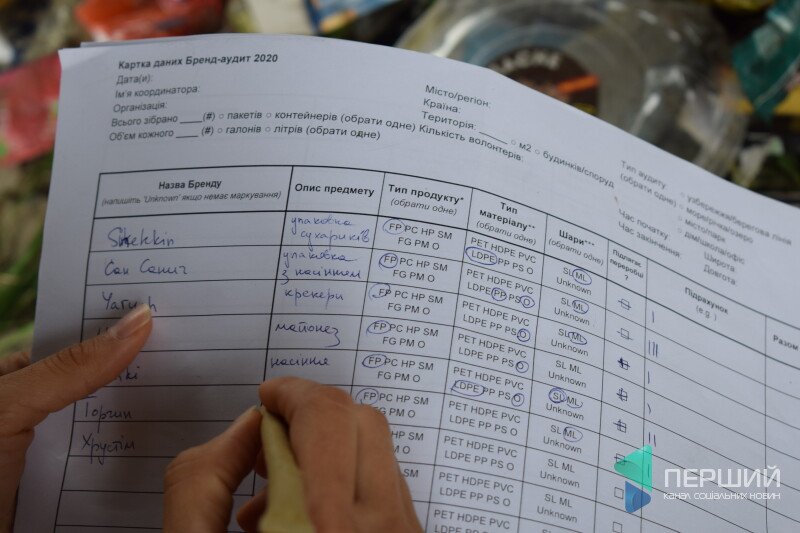 Картка даних Бренд-аудит 2020
Дата(и):
Ім'я координатора:
Організація:
Всього зібрано ____ (#) ○ пакетів ○ контейнерів (обрати одне)
Об'єм кожного ____ (#) ○ галонів ○ літрів (обрати одне)
Місто/регіон:
Країна:
Територія: ____ ○ м2 ○ будинків/споруд
Кількість волонтерів:
Тип аудиту: ○ узбережжя/берегова лінія
(обрати одне) ○ море/річка/озеро
○ місто/парк
○ дім/школа/офіс
Час початку
Час закінчення:
Широта:
Довгота:
Назва Бренду
(напишіть 'Unknown' якщо немає маркування)
Опис предмету
Тип продукту*
(обрати одне)
Тип матеріалу**
(обрати одне)
Шари***
(обрати одне)
Підлягає переробці ?
Підрахунок
(e.g. )
Разом
упаковка сухариків
FP PC HP SM
FG PM O
PET HDPE PVC
LDPE PP PS O
SL ML
Unknown
Сан Санич
упаковка з насінням
FP PC HP SM
FG PM O
PET HDPE PVC
LDPE PP PS O
SL ML
Unknown
крекери
FP PC HP SM
FG PM O
PET HDPE PVC
LDPE PP PS O
SL ML
Unknown
майонез
FP PC HP SM
FG PM O
PET HDPE PVC
LDPE PP PS O
SL ML
Unknown
насіння
FP PC HP SM
FG PM O
PET HDPE PVC
LDPE PP PS O
SL ML
Unknown
Торчин
FP PC HP SM
FG PM O
PET HDPE PVC
LDPE PP PS O
SL ML
Unknown
Хрустім
PC HP SM
PM O
PET HDPE PVC
LDPE PP PS O
SL ML
Unknown
PET HDPE PVC
ПЕРШИЙ
КАНАЛ СОЦІАЛЬНИХ НОВИН